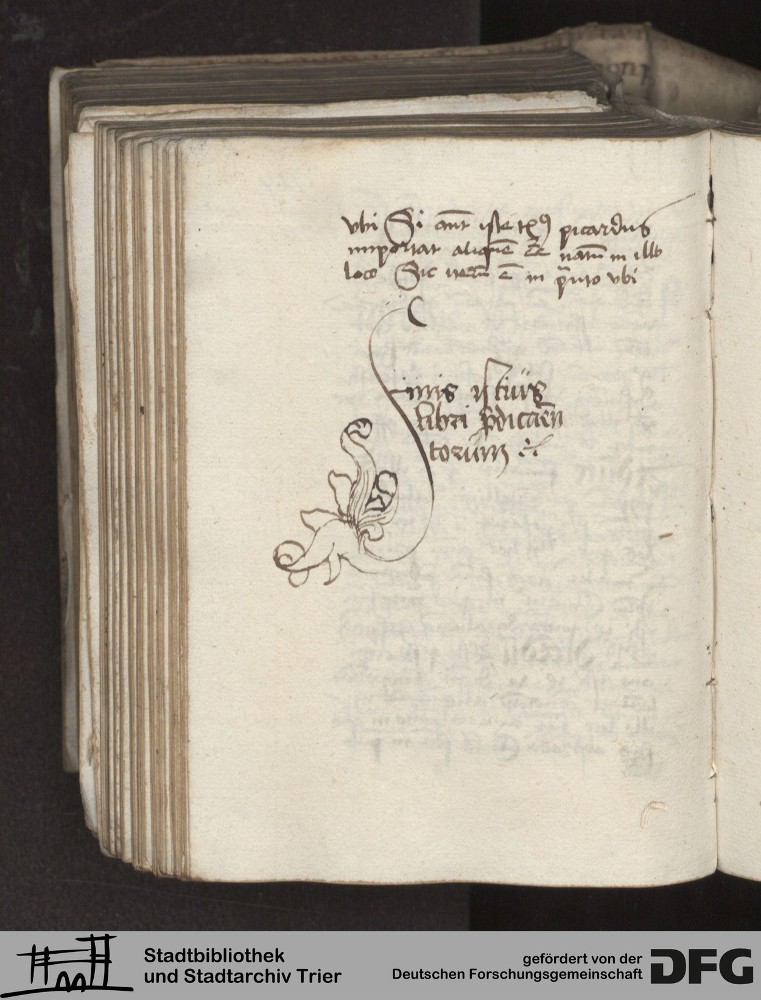 vbi Si aut iste txꝰ picardus
importat aliquē
loco Sic ē in vbi
Finis istius
libri p̄dicamēn
torum
Stadtbibliothek
und Stadtarchiv Trier
gefördert von der
Deutschen Forschungsgemeinschaft
DFG